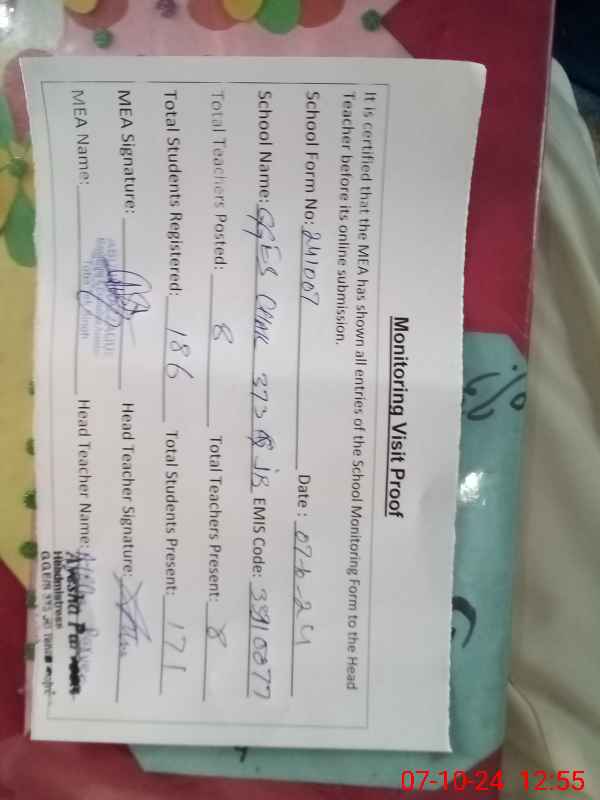 Monitoring Visit Proof
It is certified that the MEA has shown all entries of the School Monitoring Form to the Head
Teacher before its online submission.
School Form No: 241007 Date :
School Name: GGES Chak 373 JB EMIS Code: 3910877
Total Teachers Posted: 8 Total Teachers Present: 8
Total Students Registered: 186 Total Students Present: 171
MEA Signature: Head Teacher Signature:
MEA Name: Head Teacher Name:
Ayesha
Headmistress
07-10-24 12:55